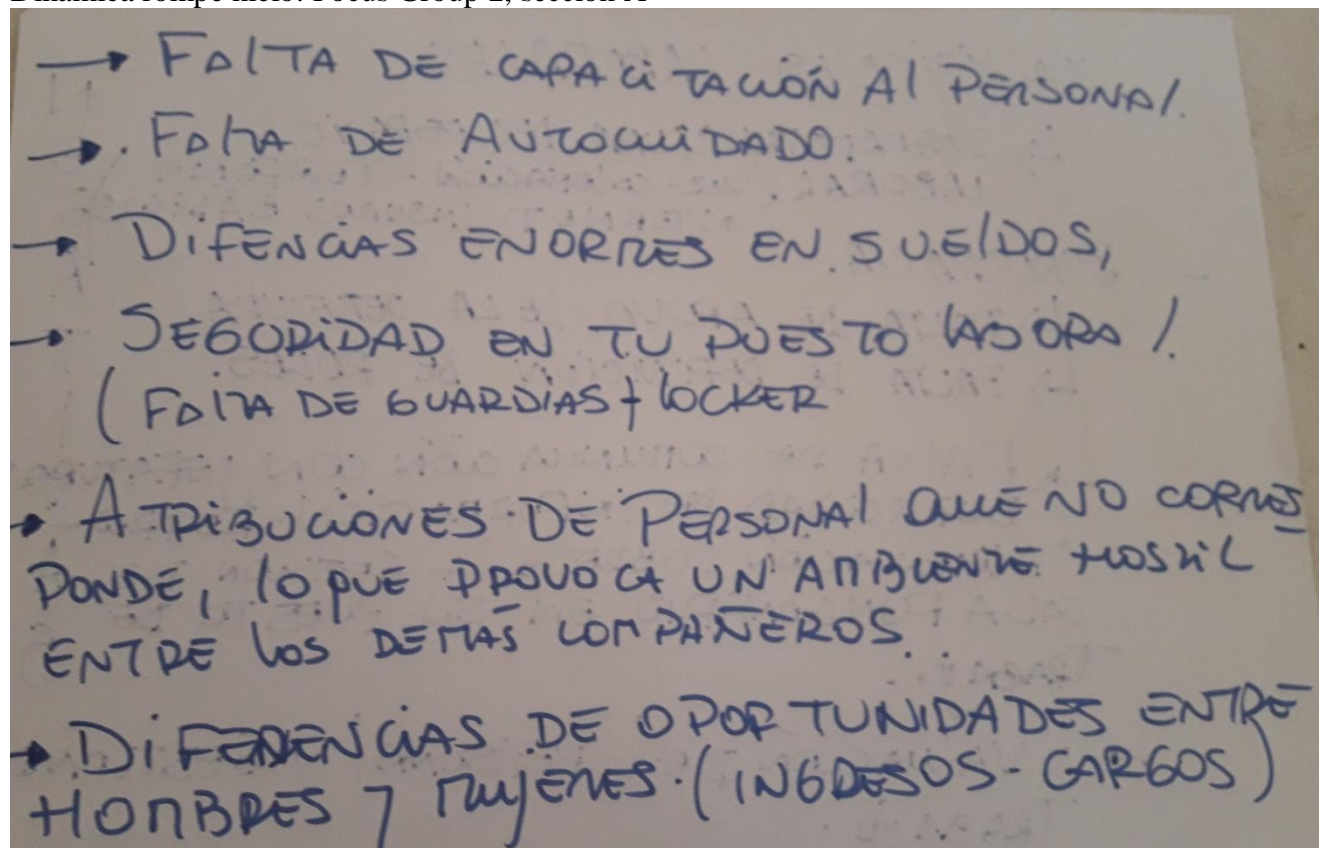 Dinámica rompe hielo: Focus Group 2, sección A
→ FALTA DE CAPACITACIÓN Al PERSONAl.
→ . FAlTA DE AUTOCUIDADO.
→ DIFENCIAS ENORMES EN SUElDOS,
→ SEGURIDAD EN TU PUESTO lABORAl.
( FAlTA DE GUARDIAS + lOCKER
→ ATRIBUCIONES DE PERSONAl QUE NO CORRES
PONDE, lO QUE PROVOCA UN AMBIENTE HOSTIL
ENTRE lOS DEMÁS COMPAÑEROS.
→ DIFERENCIAS DE OPORTUNIDADES ENTRE
HOMBRES Y MUJERES. (INGRESOS - CARGOS)